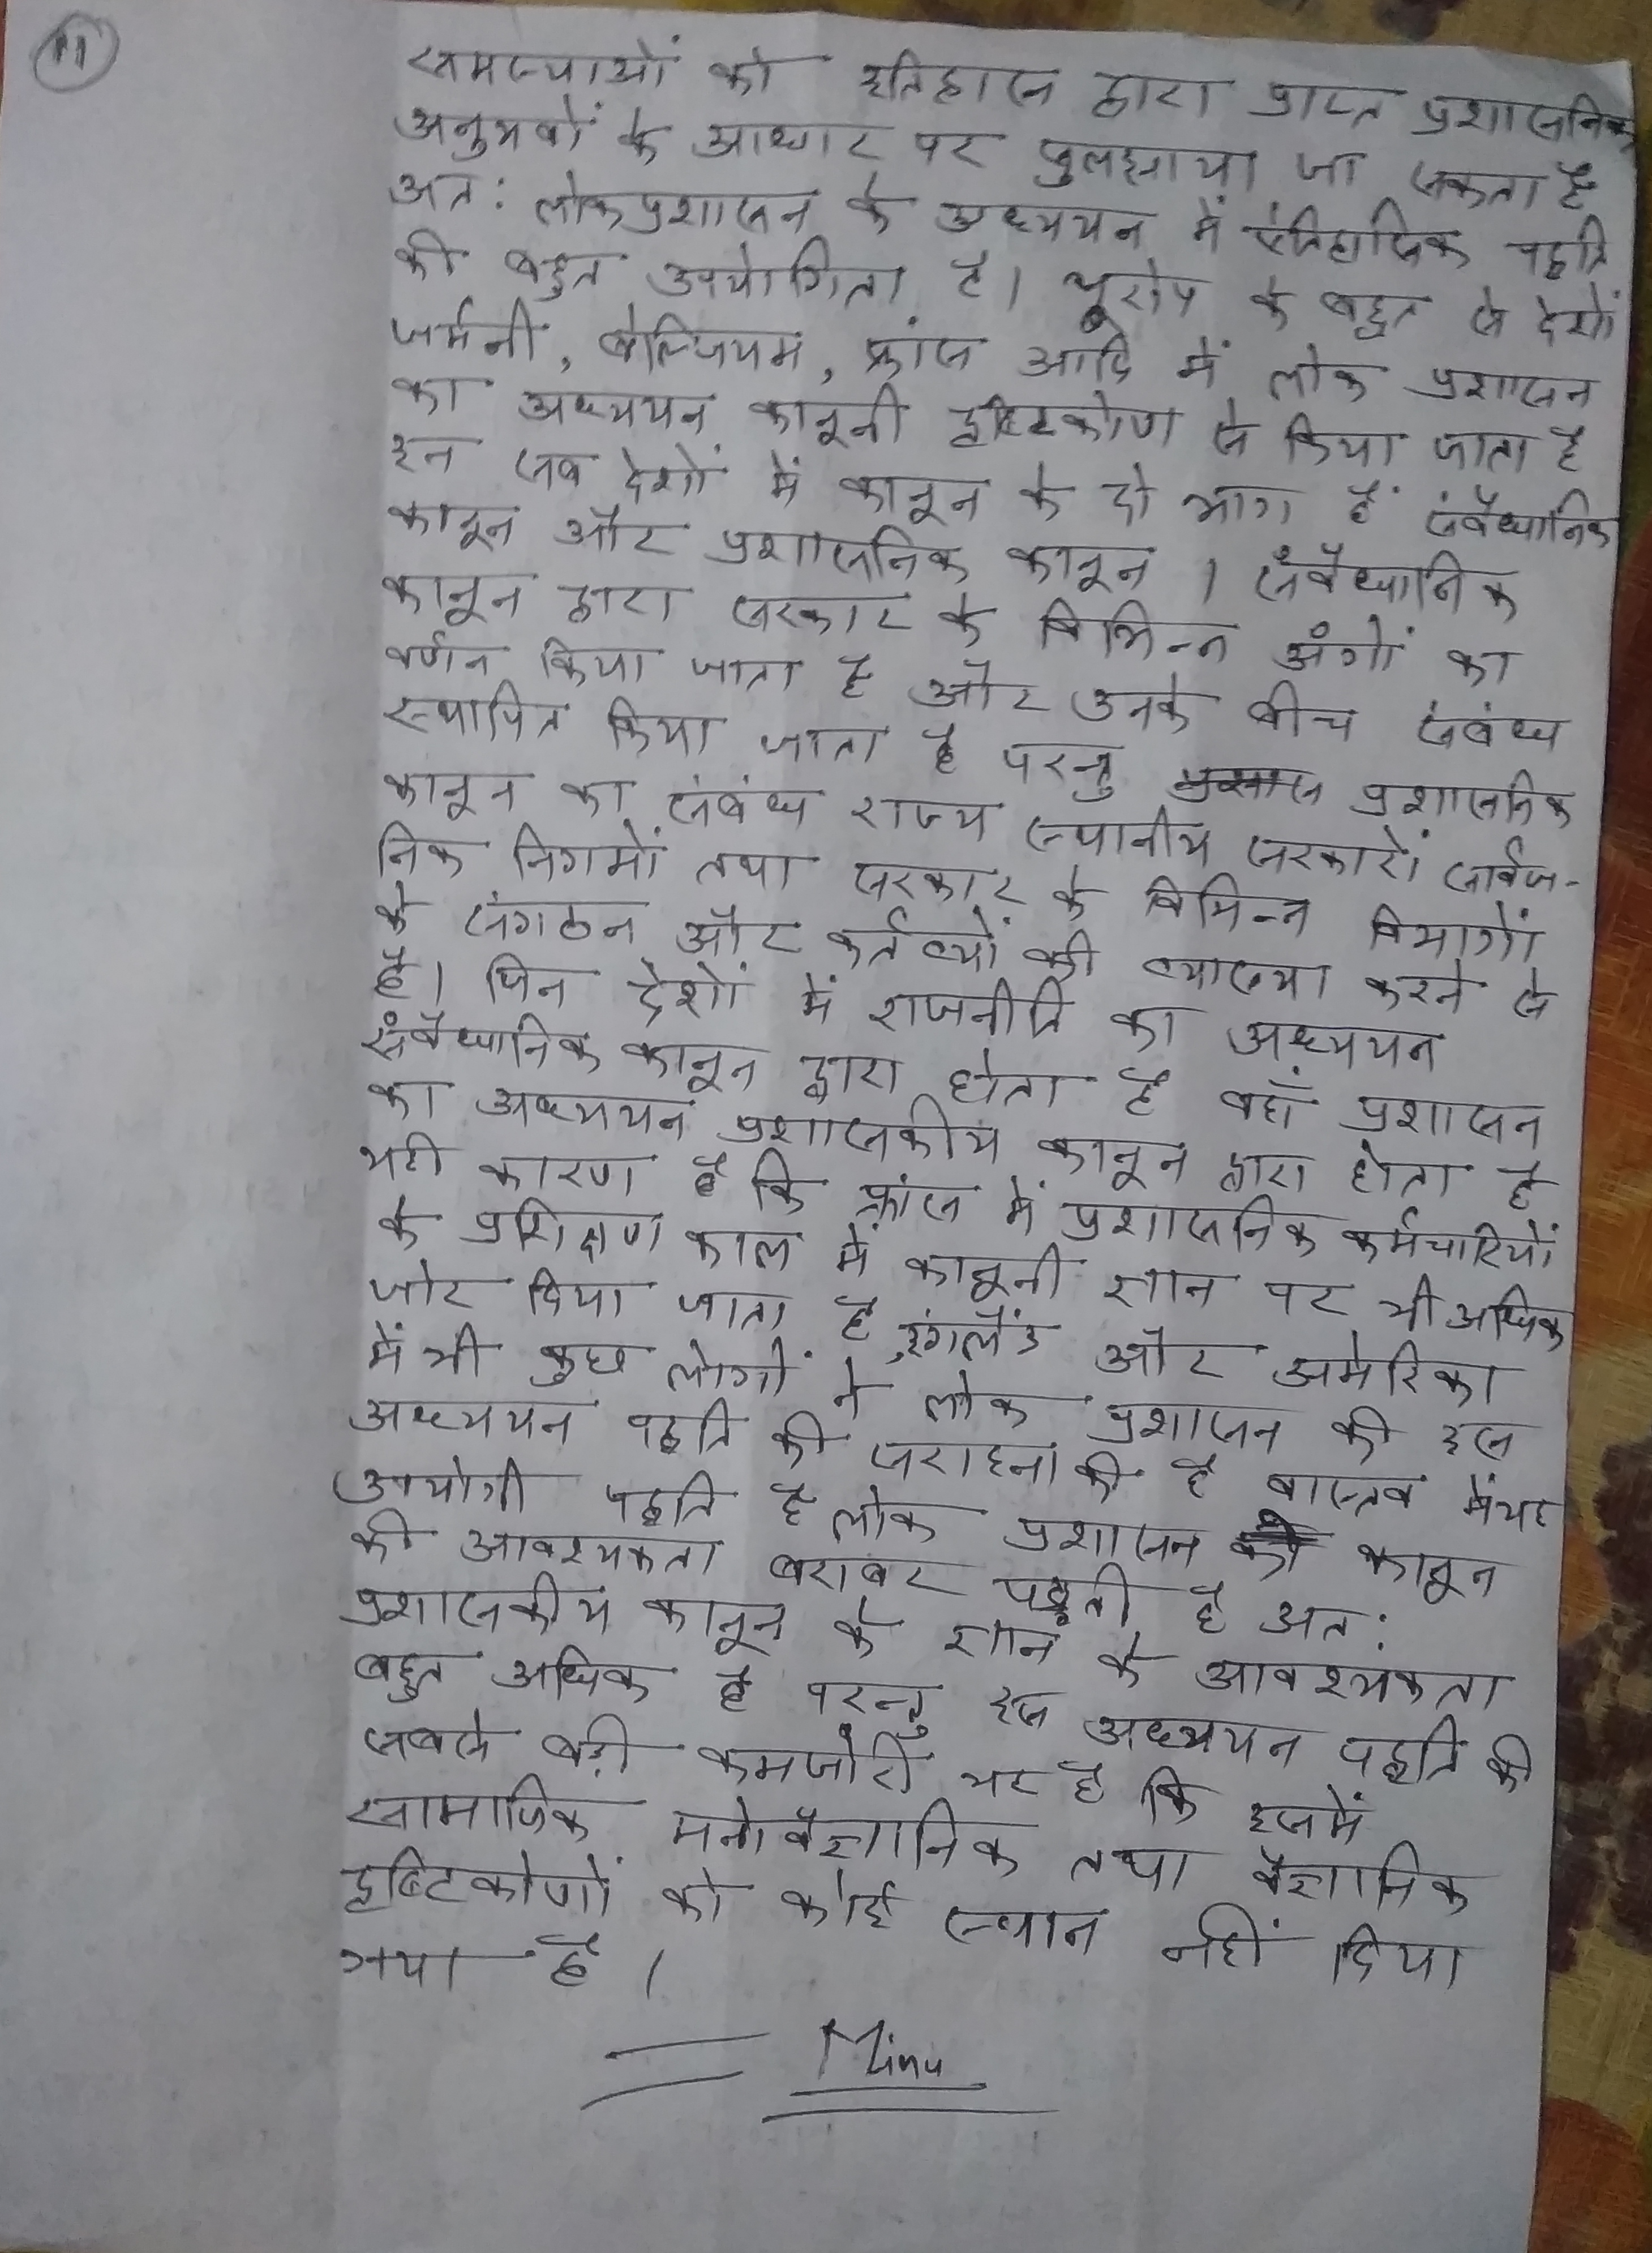 11
समस्याओं को इतिहास द्वारा प्राप्त प्रशासनिक
अनुभवों के आधार पर सुलझाया जा सकता है
अत: लोकप्रशासन के अध्ययन में ऐतिहासिक पद्धति
की बहुत उपयोगिता है। यूरोप के बहुत से देशों
जर्मनी, बेल्जियम, फ्रांस आदि में लोक प्रशासन
का अध्ययन कानूनी दृष्टिकोण से किया जाता है
इन सब देशों में कानून के दो भाग हैं संवैधानिक
कानून और प्रशासनिक कानून । संवैधानिक
कानून द्वारा सरकार के विभिन्न अंगों का
वर्णन किया जाता है और उनके बीच संबंध
स्थापित किया जाता है परन्तु प्रशासनिक
कानून का संबंध राज्य स्थानीय सरकारों सार्वज-
निक निगमों तथा सरकार के विभिन्न विभागों
के संगठन और कर्तव्यों की व्याख्या करने से
है। जिन देशों में राजनीति का अध्ययन
संवैधानिक कानून द्वारा होता है वहाँ प्रशासन
का अध्ययन प्रशासकीय कानून द्वारा होता है
यही कारण है कि फ्रांस में प्रशासनिक कर्मचारियों
के प्रशिक्षण काल में कानूनी ज्ञान पर भी अधिक
जोर दिया जाता है, इंगलैंड और अमेरिका
में भी कुछ लोगों ने लोक प्रशासन की इस
अध्ययन पद्धति की सराहना की है वास्तव में यह
उपयोगी पद्धति है लोक प्रशासन को कानून
की आवश्यकता बराबर पड़ती है अत:
प्रशासकीय कानून के ज्ञान के आवश्यकता
बहुत अधिक है परन्तु इस अध्ययन पद्धति की
सबसे बड़ी कमजोरी यह है कि इसमें
सामाजिक मनोवैज्ञानिक तथा वैज्ञानिक
दृष्टिकोणों को कोई स्थान नहीं दिया
गया है ।
Minu